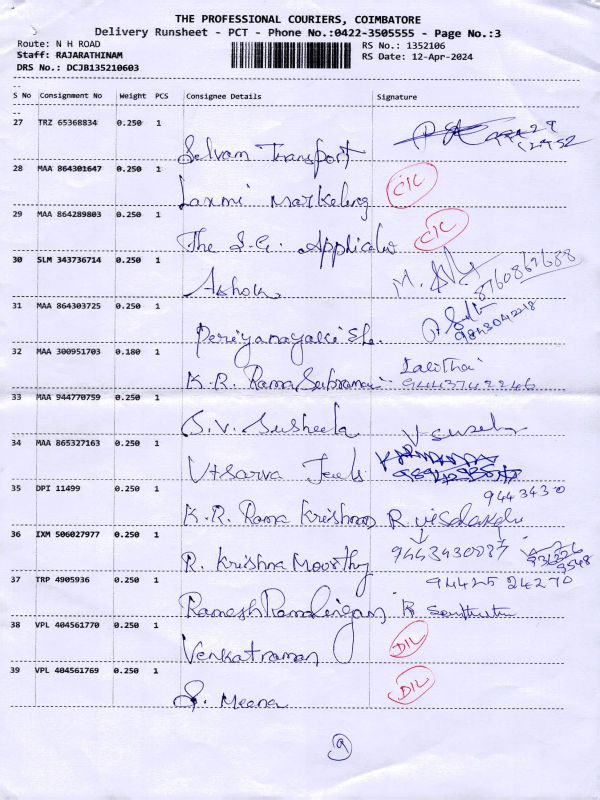 THE PROFESSIONAL COURIERS, COIMBATORE
Delivery Runsheet - PCT - Phone No.:0422-3505555 - Page No.:3
Route: N H ROAD RS No.: 1352106
Staff: RAJARATHINAM RS Date: 12-Apr-2024
DRS No.: DCJB135210603
S No Consignment No Weight PCS Consignee Details Signature
27 TRZ 65368834 0.250 1
Selvam Transport
28 MAA 864301647 0.250 1
Laxmi Marketing CIC
29 MAA 864289803 0.250 1
The S.G. CIC
30 SLM 343736714 0.250 1
Ashok M. 8760867688
31 MAA 864303725 0.250 1
Periyanayaki
32 MAA 300951703 0.180 1
K.R. Rama Lalitha
9443742246
33 MAA 944770759 0.250 1
S.V. Susheela V. Susela
34 MAA 865327163 0.250 1
Utsarva Jeels
35 DPI 11499 0.250 1 9443430
K.R. Rama Krishnan R visalakshi
36 IXM 506027977 0.250 1
R. Krishna Moorthy 9443430087
37 TRP 4905936 0.250 1 94425 24270
Ramesh Ramalingam R
38 VPL 404561770 0.250 1
Venkatraman DIL
39 VPL 404561769 0.250 1
S. Meena DIL
9